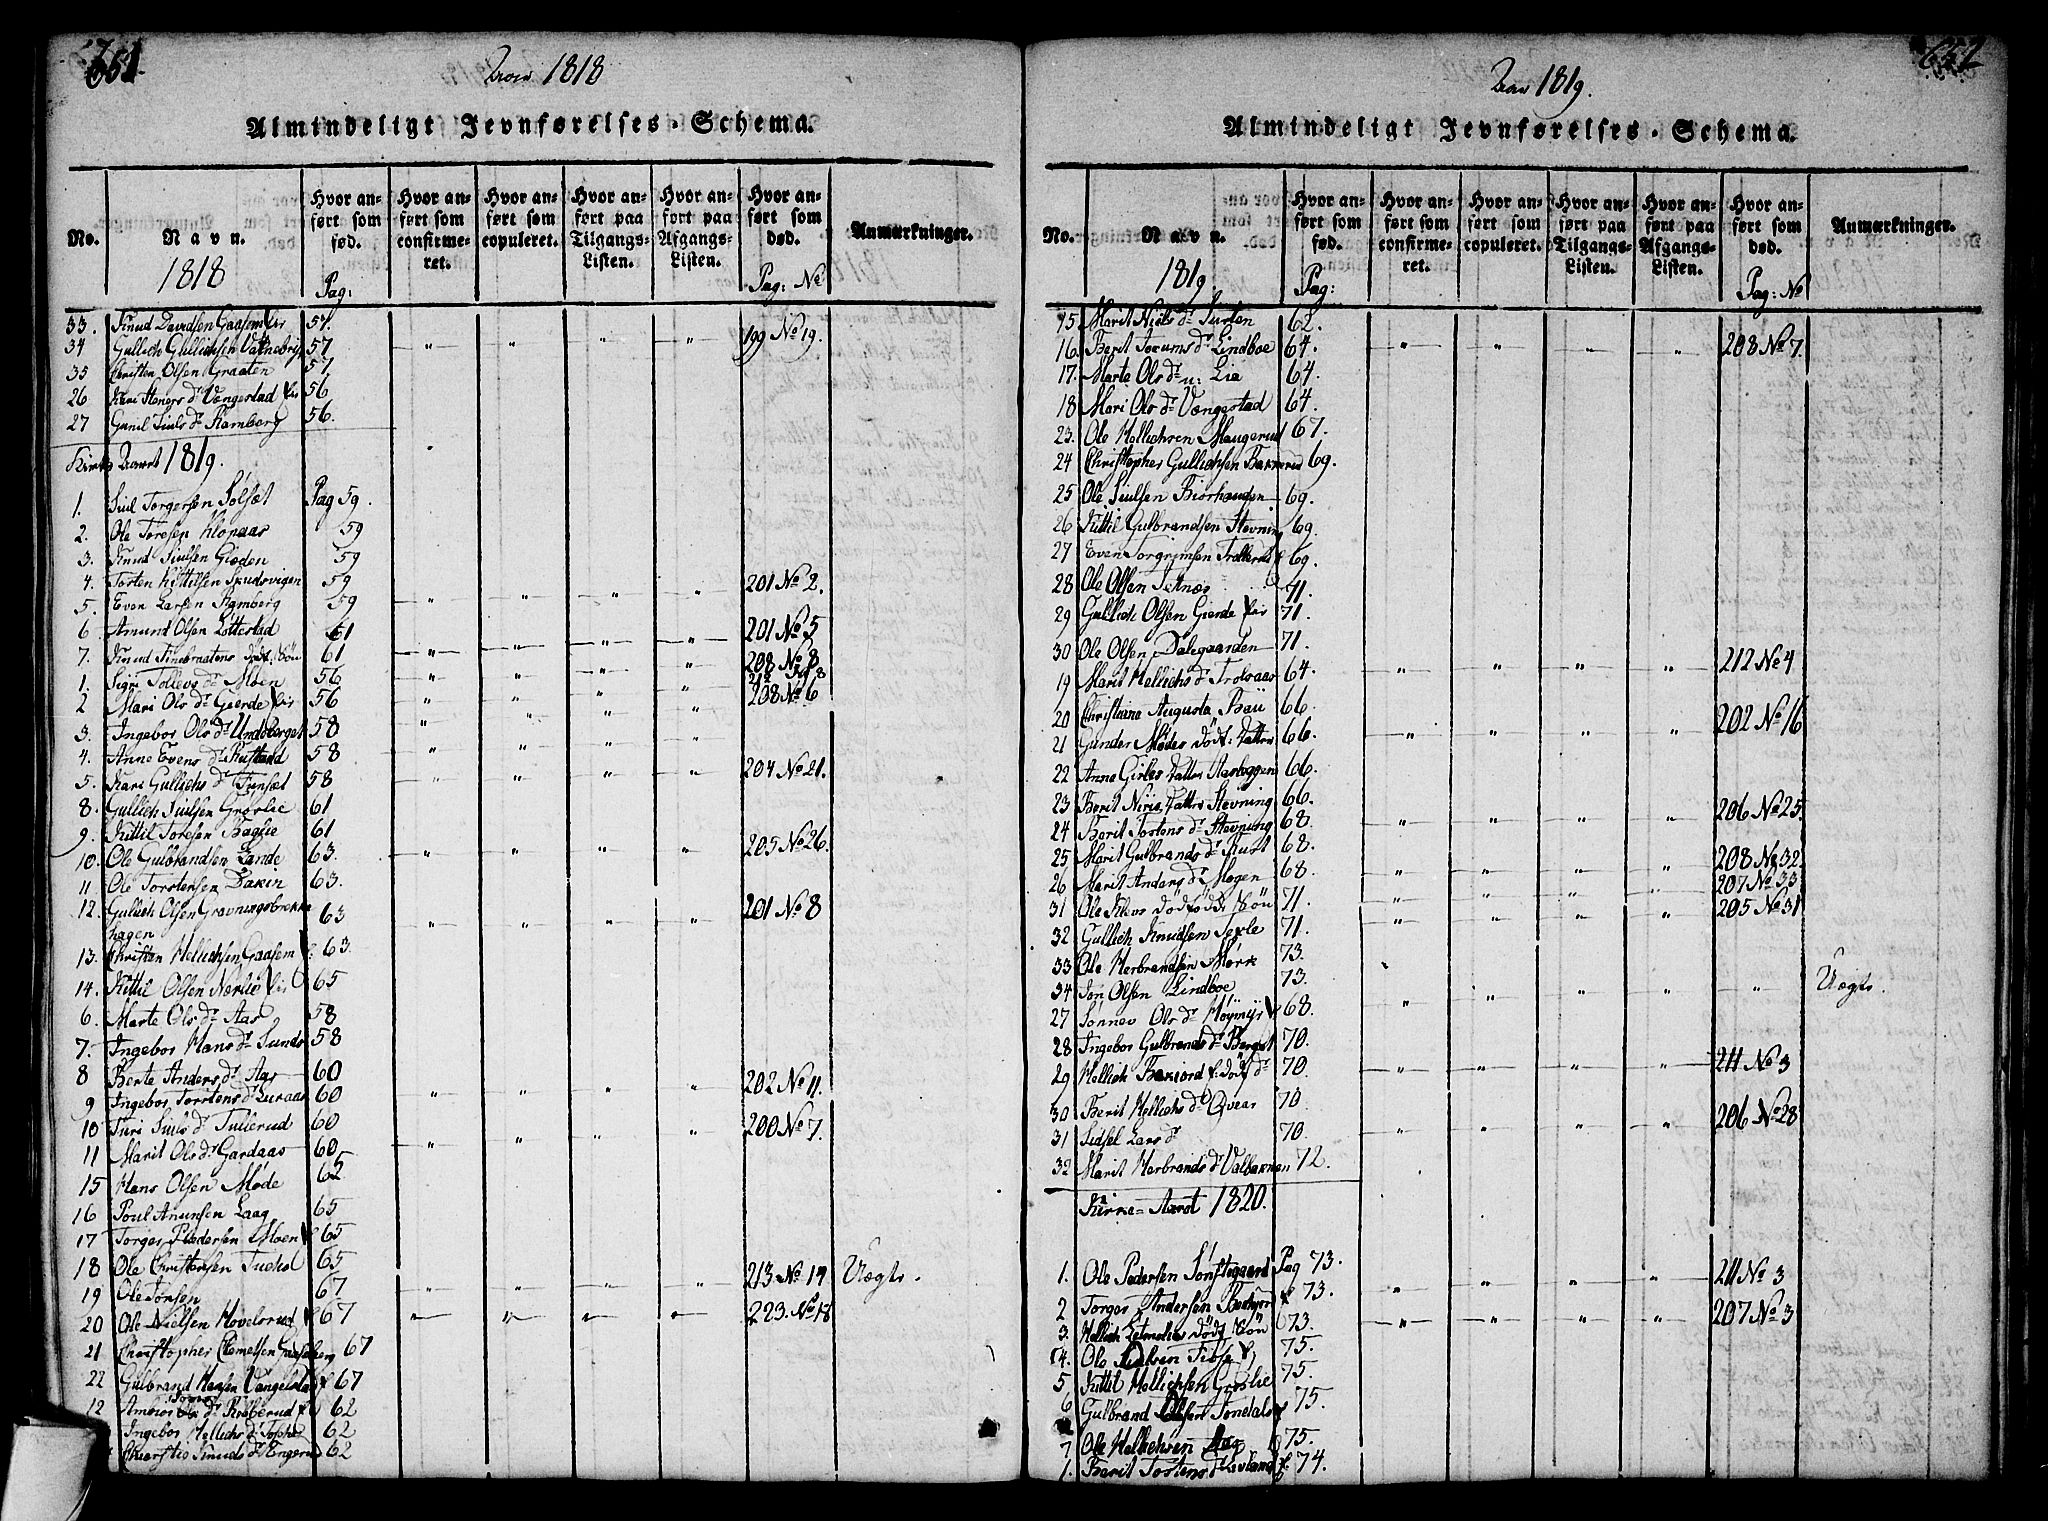 651.
Aar 1818
Almindeligt Jevnførelses-Schema.
No.
Navn.
1818
Hvor anført som fød.
Pag:
Hvor anført som confirmeret.
Hvor anført som copuleret.
Hvor anført paa Tilgangs-Listen.
Hvor anført paa Afgangs-Listen.
Hvor anført som død.
Pag: No
Anmærkninger.
33. Knud Davidsen Gaasem 57.
34 Gullich Gullichsen 57 " " " " 199 No 19.
35 Christen Olsen Graaten 57.
26 Kari Steners dr Vængestad 56
27 Gunil Siuls dr Ramberg 56.
Kirke Aaret 1819.
1. Siul Torgersen Sølsæt Pag 59.
2. Ole Toresen Klopaas 59
3. Knud Siulsen Gioden 59
4. Torsten Kittilsen Skudsvigen 59 201 No 2.
5. Even Larsen Ramberg 59 " " " "
6 Amund Olsen Lottestad 61 201 No 5
7. Knud 61 " " " " 208 No 8
1. Sigri Tollevs dr Moen 56 " " " "
2 Mari Ols dr Gierde 56 " " " " 208 No 6
3. Ingebor Ols dr Undsberget 58 " " " "
4. Anne Evens dr Rustand 58 " " " "
5. Kari Gullichs dr Trinsæt 58 " " " " 204 No 21.
8. Gullich Siulsen Groslie 61
9. Kittil Toresen Baglie 61
10. Ole Gulbrandsen Lande 63. " " " " 205 No 26.
11. Ole Torstensen Dakin 63.
12. Gulich Olsen Gravningsbrekke 63 " " " " 201 No 8
hagen
13. Christen Hellichsen Gaasem 63.
14. Kittil Olsen Nørlie 65
6. Marte Ols dr Aas 58
7. Ingebor Hans dr Lunds 58
8 Berte Anders dr Aas 60
9 Ingebor Torstens dr Luraas 60 " " " " 202 No 11.
10 Turi Siuls dr Tullerud 60
11 Marit Ols dr Gardaas 60 " " " " 200 No 7.
15 Hans Olsen Møde 65
16 Poul Amunsen Laag 65
17 Torger Pedersen Moen 65
18 Ole Christensen 65
19 Ole Torsen 67 " " " " 213 No 14 Uægte.
20 Ole Nielsen Hovelsrud 67 " " " " 223. No 18
21 Christopher Clemetsen 67
22 Gulbrand Hansen Vangelstad 67
12 dr Raaberud 62
Ingebor Hellichs dr 62
Knuds dr Engerud 62
652
Aar 1819.
Almindeligt Jevnførelses-Schema.
No.
Navn.
1819.
Hvor anført som fød.
Pag:
Hvor anført som confirmeret.
Hvor anført som copuleret.
Hvor anført paa Tilgangs-Listen.
Hvor anført paa Afgangs-Listen.
Hvor anført som død.
Pag: No
Anmærkninger.
15 Marit Niels dr 62.
16. Berit Jorums dr Lindboe 64. " " " " 208 No 7.
17. Marte Ols dr n: Lia 64.
18 Mari Ols dr Vængestad 64.
23. Ole Hellichsen Haugerud 67.
24 Christopher Gullichsen Bakkerud 69.
25 Ole Siulsen Biørhanden 69.
26 Kittil Gulbrandsen Stevning 69.
27 Even Torgrimsen 69.
28 Ole Olsen 71.
29 Gullich Olsen Gierde 71.
30 Ole Olsen Dalegaarden 71.
19 Marit Hellichs dr Trolsaas 64. " " " " 212 No 4
20 Christiane Augusta Bäu 66.
21 Gunder Mødes dødf: datter 66. " " " " 202 No 16
22 Anne Girbes Datter Aasloggen 66.
23 Berit Niris, Datter Stevning 66.
24 Berit Torstens dr Stevning 68. " " " " 206 No 25.
25 Marit Gulbrands dr Rust 68.
26 Marit Anders dr Mogen 68. " " 208 No 32.
31 Ole Klevs dødfødde Søn 71. " " " " 207 No 33
32 Gullich Knudsen 71. " " " " 205 No 31
33 Ole Herbrandsen Mørk 73.
34 Jon Olsen Lindboe 73.
27 Sønnev Ols dr Høymyr 68. " " " " " Uægte.
28 Ingebor Gulbrands dr Berget 70.
29 Hellich Bakiord dødf dr 70. " " " " 211 No 3
30 Berit Hellichs dr Qveas 70.
31 Sidsel Lars dr 70. " " " " 206 No 28
32 Marit Herbrands dr Valbaknen 72.
Kirke-Aaret 1820.
1. Ole Pedersen Sønstegaard Pag 73.
2 Torger Andersen 73. " " " " 211 No 3
3. Hellich dødf: Søn 73. " " " " 207 No 3
4. Ole 75.
5 Kittil Hellichsen Groslie 75.
6 Gulbrand Olsen 75.
7. Ole Hellichsen 75.
1. Berit Torstens dr 74.